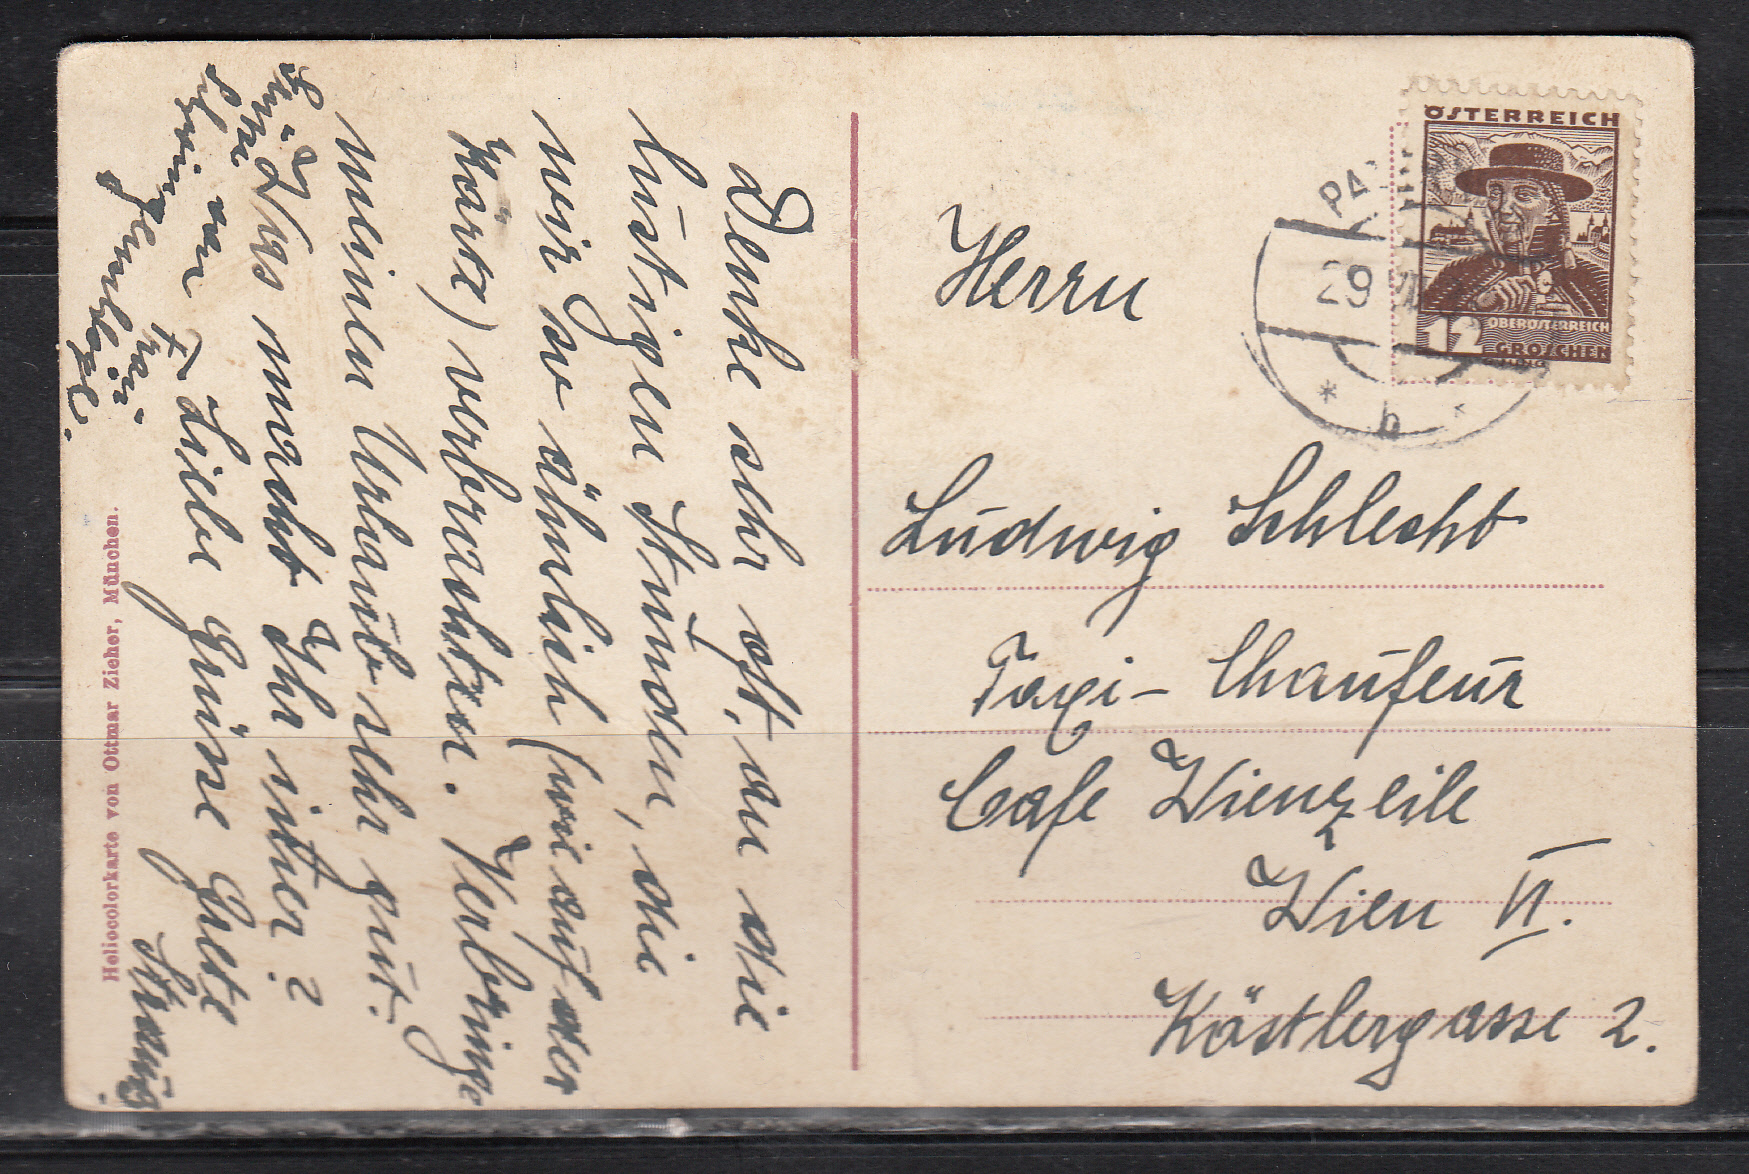 Denke sehr oft, an die
lustigen Stunden, die
wir so ähnlich (wie auf der
Karte) verbrachten. Verbringe
meinen Urlaub sehr gut.
Was macht Ihr immer?
Liebe Grüsse Grete
Heliocolorkarte von Ottmar Zieher, München.
ÖSTERREICH
OBERÖSTERREICH
12 GROSCHEN
PA
29 VII
b
Herrn
Ludwig Schlecht
Taxi-Chaufeur
Cafe Wienzeile
Wien VI.
Köstlergasse 2.